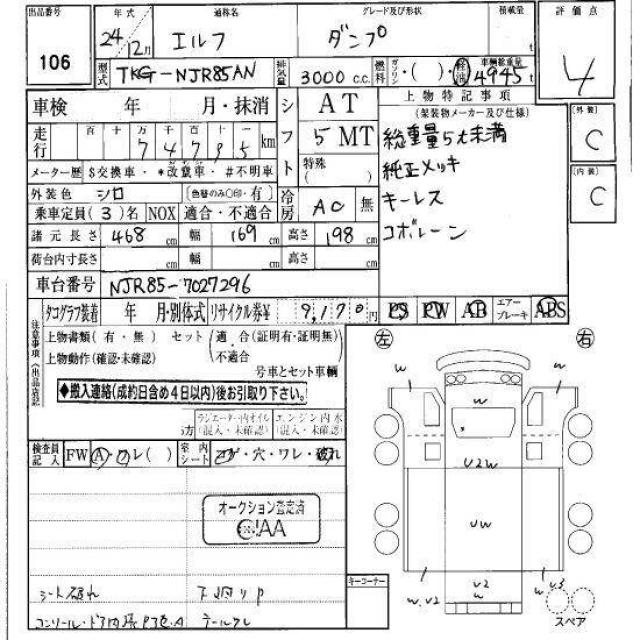 出品番号 年式 通称名 グレード及び形状 積載量 評価点
106 24/12月 エルフ ダンプ t 4
型式 TKG-NJR85AN 排気量 3000 c.c. 燃料 ガソリン・( )・軽油 車輌総重量 4945 t
車検 年 月・抹消 シフト AT 上物特記事項 [外装]
走行 百 十 万 千 百 十 一 5 MT (架装物メーカー及び仕様) C
km 特殊 ( ) 総重量5t未満
メーター歴 $交換車・*改ざん車・#不明車 純正メッキ [内装]
外装色 シロ [色替のみ○印・有] 冷房 AC 無 キーレス C
乗車定員(3)名 NOX 適合・不適合 コボレーン
諸元長さ 468 cm 幅 169 cm 高さ 198 cm
荷台内寸長さ cm 幅 cm 高さ cm
車台番号 NJR85-7027296
タコグラフ装着 年 月・別体式 リサイクル券¥ 9,170円 PS PW AB エアーブレーキ ABS
注意事項
上物書類(有・無) セット 適合(証明有・証明無)
上物動作(確認・未確認) 不適合
号車とセット車輌
左 右
◆搬入連絡(成約日含め4日以内)後お引取り下さい。
ラジエーター内オイル エンジン内水
(混入・未確認) (混入・未確認)
検査員記入 FW A・ワレ( ) 室内シート コゲ・穴・ワレ・破れ
w w w
v2w
オークション査定済
CIAA
vw
シート破れ 下廻りP
コーナー
w,v2 v2 w v3
w w
スペア